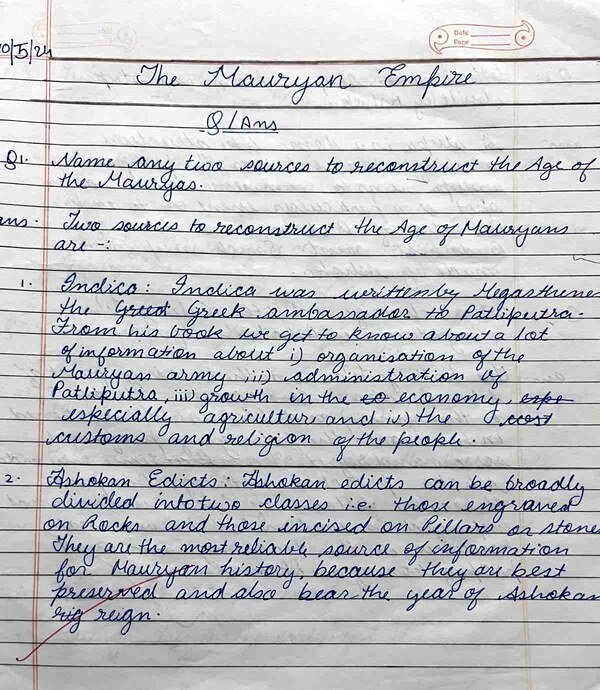 Date
Page
10/5/24
The Mauryan Empire
Q/Ans
Q1. Name any two sources to reconstruct the Age of
the Mauryas.
Ans. Two sources to reconstruct the Age of Mauryans
are -:
1. Indica : Indica was written by Megasthenes
the Greek ambassador to Patliputra.
From his book we get to know about a lot
of information about i) organisation of the
Mauryan army, ii) administration of
Patliputra, iii) growth in the economy,
especially agriculture and iv) the
customs and religion of the people.
2. Ashokan Edicts : Ashokan edicts can be broadly
divided into two classes i.e. those engraved
on Rocks and those incised on Pillars or stones
They are the most reliable source of information
for Mauryan history, because they are best
preserved and also bear the year of Ashokan
reign.